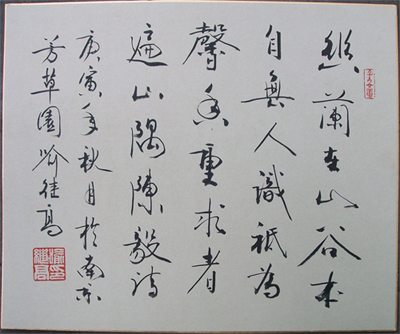 幽蘭在山谷本
自無人識祇為
馨香重求者
遍山隅陳毅詩
庚寅年秋月於南京
芳草園喻継高